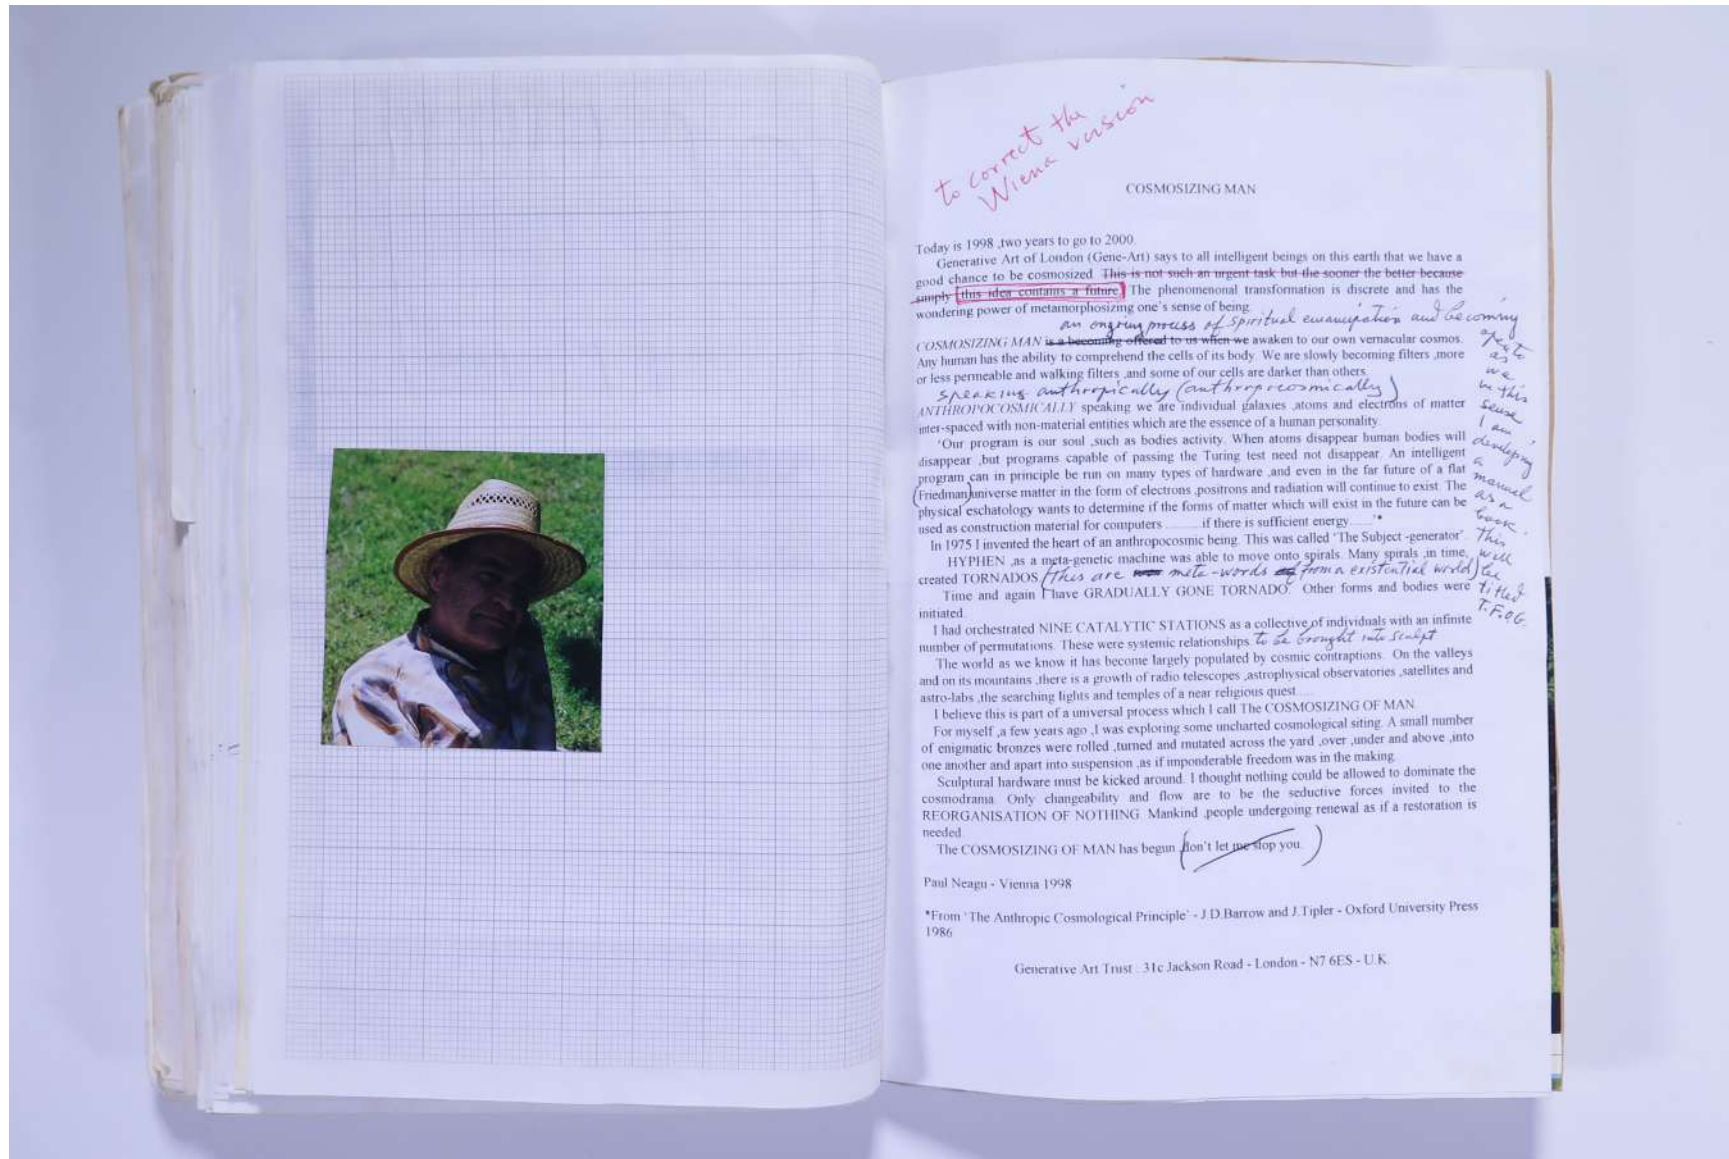 to correct the
Wiena version
COSMOSIZING MAN
Today is 1998 ,two years to go to 2000.
Generative Art of London (Gene-Art) says to all intelligent beings on this earth that we have a
good chance to be cosmosized. This is not such an urgent task but the sooner the better because
simply this idea contains a future. The phenomenonal transformation is discrete and has the
wondering power of metamorphosizing one's sense of being.
an ongoing process of spiritual emancipation and becoming
COSMOSIZING MAN is a becoming offered to us when we awaken to our own vernacular cosmos.
Any human has the ability to comprehend the cells of its body. We are slowly becoming filters ,more
or less permeable and walking filters ,and some of our cells are darker than others.
speaking anthropically (anthropocosmically)
ANTHROPOCOSMICALLY speaking we are individual galaxies ,atoms and electrons of matter
inter-spaced with non-material entities which are the essence of a human personality.
'Our program is our soul ,such as bodies activity. When atoms disappear human bodies will
disappear ,but programs capable of passing the Turing test need not disappear. An intelligent
program can in principle be run on many types of hardware ,and even in the far future of a flat
(Friedman)universe matter in the form of electrons ,positrons and radiation will continue to exist. The
physical eschatology wants to determine if the forms of matter which will exist in the future can be
used as construction material for computers ......... if there is sufficient energy ......'*
In 1975 I invented the heart of an anthropocosmic being. This was called 'The Subject -generator'.
HYPHEN ,as a meta-genetic machine was able to move onto spirals. Many spirals ,in time,
created TORNADOS (this are meta-words from a existential world)
Time and again I have GRADUALLY GONE TORNADO. Other forms and bodies were
initiated.
I had orchestrated NINE CATALYTIC STATIONS as a collective of individuals with an infinite
number of permutations. These were systemic relationships to be brought into sculpt
The world as we know it has become largely populated by cosmic contraptions. On the valleys
and on its mountains ,there is a growth of radio telescopes ,astrophysical observatories ,satellites and
astro-labs ,the searching lights and temples of a near religious quest.....
I believe this is part of a universal process which I call The COSMOSIZING OF MAN.
For myself ,a few years ago ,I was exploring some uncharted cosmological siting. A small number
of enigmatic bronzes were rolled ,turned and mutated across the yard ,over ,under and above ,into
one another and apart into suspension ,as if imponderable freedom was in the making.
Sculptural hardware must be kicked around. I thought nothing could be allowed to dominate the
cosmodrama. Only changeability and flow are to be the seductive forces invited to the
REORGANISATION OF NOTHING. Mankind ,people undergoing renewal as if a restoration is
needed.
The COSMOSIZING OF MAN has begun (don't let me stop you. )
Paul Neagu - Vienna 1998
*From 'The Anthropic Cosmological Principle' - J.D.Barrow and J.Tipler - Oxford University Press
1986
Generative Art Trust : 31c Jackson Road - London - N7 6ES - U.K.
as
we
in this
sense
I am
developing
a
manual
as a
book.
This
will
be
titled
T.F.O.G.